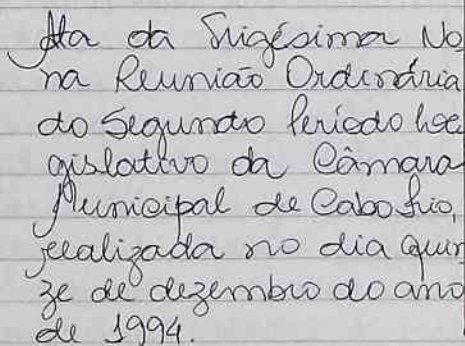 Ata da Trigésima No
na Reunião Ordinária
do Segundo Período Le
gislativo da Câmara
Municipal de Cabo Frio,
realizada no dia quin
ze de dezembro do ano
de 1994.